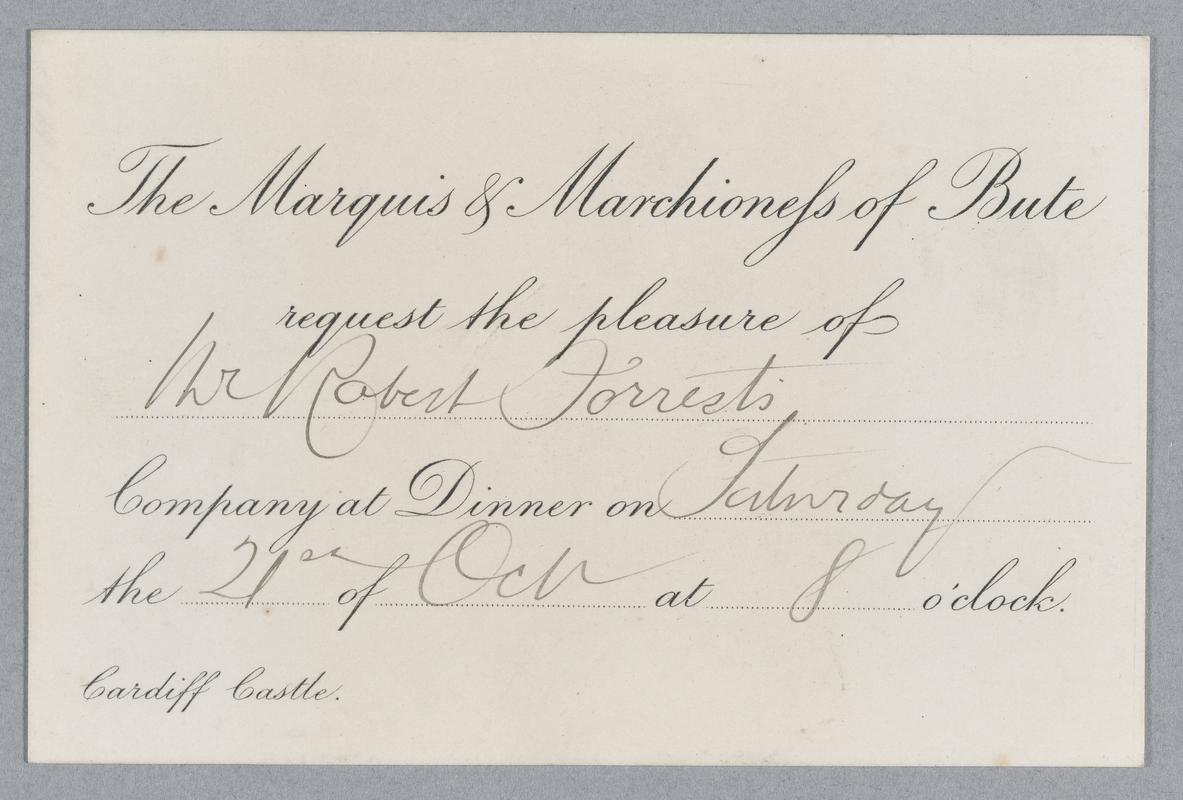 The Marquis & Marchioneſs of Bute
request the pleasure of
Mr Robert Forrest's
Company at Dinner on Saturday
the 21st of Oct at 8 o'clock.
Cardiff Castle.